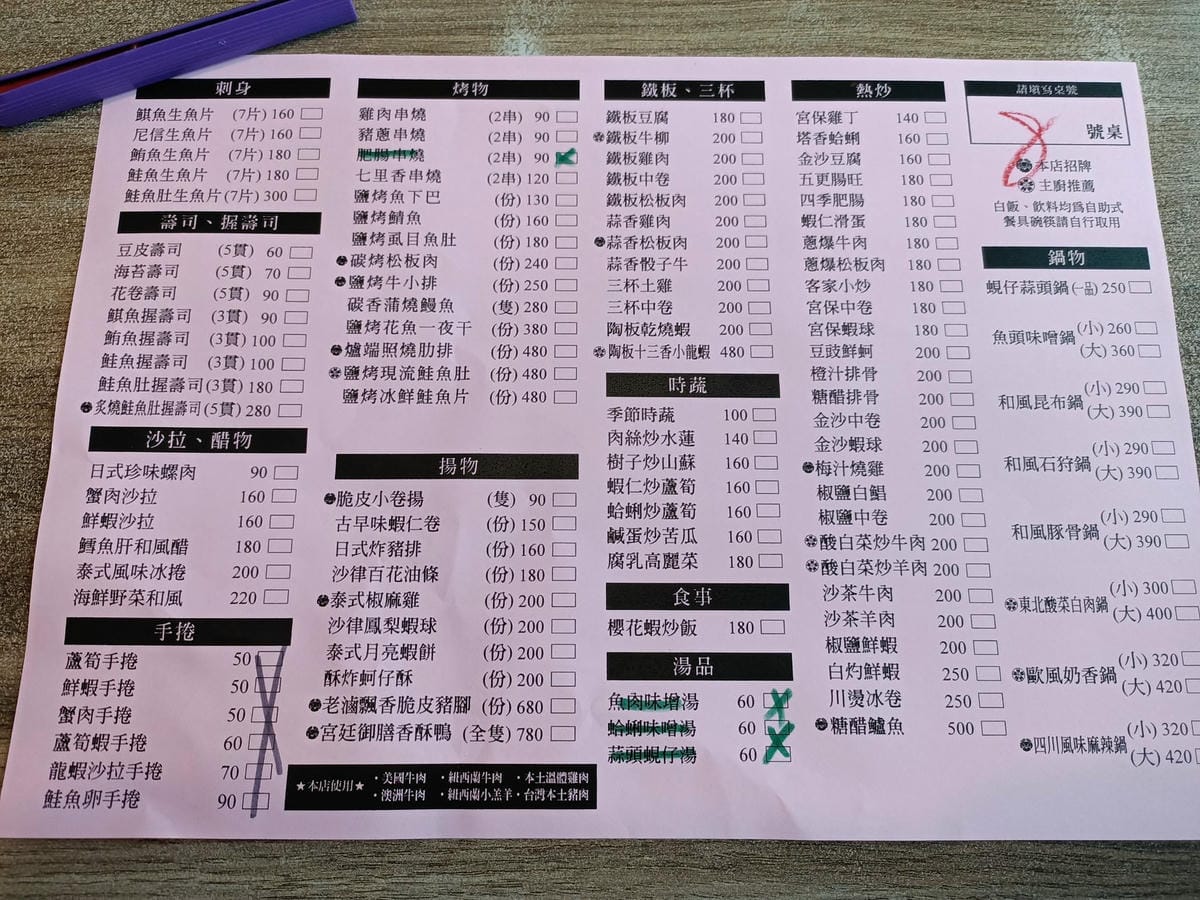 刺身
鯕魚生魚片 (7片) 160
尼信生魚片 (7片) 160
鮪魚生魚片 (7片) 180
鮭魚生魚片 (7片) 180
鮭魚肚生魚片 (7片) 300
壽司、握壽司
豆皮壽司 (5貫) 60
海苔壽司 (5貫) 70
花卷壽司 (5貫) 90
鯕魚握壽司 (3貫) 90
鮪魚握壽司 (3貫) 100
鮭魚握壽司 (3貫) 100
鮭魚肚握壽司 (3貫) 180
炙燒鮭魚肚握壽司 (5貫) 280
沙拉、醋物
日式珍味螺肉 90
蟹肉沙拉 160
鮮蝦沙拉 160
鱈魚肝和風醋 180
泰式風味冰捲 200
海鮮野菜和風 220
手捲
蘆筍手捲 50
鮮蝦手捲 50
蟹肉手捲 50
蘆筍蝦手捲 60
龍蝦沙拉手捲 70
鮭魚卵手捲 90
烤物
雞肉串燒 (2串) 90
豬蔥串燒 (2串) 90
肥腸串燒 (2串) 90
七里香串燒 (2串) 120
鹽烤魚下巴 (份) 130
鹽烤鯖魚 (份) 160
鹽烤虱目魚肚 (份) 180
碳烤松板肉 (份) 240
鹽烤牛小排 (份) 250
碳香蒲燒鰻魚 (隻) 280
鹽烤花魚一夜干 (份) 380
爐端照燒肋排 (份) 480
鹽烤現流鮭魚肚 (份) 480
鹽烤冰鮮鮭魚片 (份) 480
揚物
脆皮小卷揚 (隻) 90
古早味蝦仁卷 (份) 150
日式炸豬排 (份) 160
沙律百花油條 (份) 180
泰式椒麻雞 (份) 200
沙律鳳梨蝦球 (份) 200
泰式月亮蝦餅 (份) 200
酥炸蚵仔酥 (份) 200
老滷飄香脆皮豬腳 (份) 680
宮廷御膳香酥鴨 (全隻) 780
★本店使用★ ・美國牛肉 ・紐西蘭牛肉 ・本土溫體雞肉
・澳洲牛肉 ・紐西蘭小羔羊 ・台灣本土豬肉
鐵板、三杯
鐵板豆腐 180
鐵板牛柳 200
鐵板雞肉 200
鐵板中卷 200
鐵板松板肉 200
蒜香雞肉 200
蒜香松板肉 200
蒜香骰子牛 200
三杯土雞 200
三杯中卷 200
陶板乾燒蝦 200
陶板十三香小龍蝦 480
時蔬
季節時蔬 100
肉絲炒水蓮 140
樹子炒山蘇 160
蝦仁炒蘆筍 160
蛤蜊炒蘆筍 160
鹹蛋炒苦瓜 160
腐乳高麗菜 180
食事
櫻花蝦炒飯 180
湯品
魚肉味增湯 60
蛤蜊味噌湯 60
蒜頭蜆仔湯 60
熱炒
宮保雞丁 140
塔香蛤蜊 160
金沙豆腐 160
五更腸旺 180
四季肥腸 180
蝦仁滑蛋 180
蔥爆牛肉 180
蔥爆松板肉 180
客家小炒 180
宮保中卷 180
宮保蝦球 180
豆豉鮮蚵 200
橙汁排骨 200
糖醋排骨 200
金沙中卷 200
金沙蝦球 200
梅汁燒雞 200
椒鹽白鯧 200
椒鹽中卷 200
酸白菜炒牛肉 200
酸白菜炒羊肉 200
沙茶牛肉 200
沙茶羊肉 200
椒鹽鮮蝦 200
白灼鮮蝦 250
川燙冰卷 250
糖醋鱸魚 500
請填寫桌號
號桌
本店招牌
主廚推薦
白飯、飲料均為自助式
餐具碗筷請自行取用
鍋物
蜆仔蒜頭鍋 (一品) 250
魚頭味噌鍋 (小) 260
(大) 360
和風昆布鍋 (小) 290
(大) 390
和風石狩鍋 (小) 290
(大) 390
和風豚骨鍋 (小) 290
(大) 390
東北酸菜白肉鍋 (小) 300
(大) 400
歐風奶香鍋 (小) 320
(大) 420
四川風味麻辣鍋 (小) 320
(大) 420